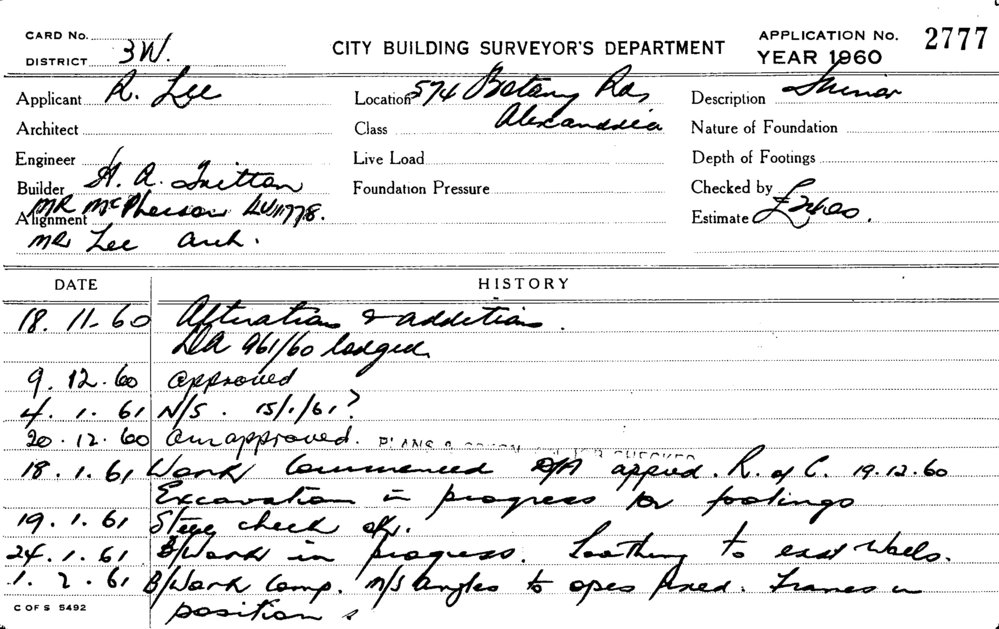 CARD No.
DISTRICT 3W.
CITY BUILDING SURVEYOR'S DEPARTMENT
APPLICATION No. 2777
YEAR 1960
Applicant R. Lee
Location 574 Botany Rd
Alexandria
Description Minor
Architect
Class
Nature of Foundation
Engineer
Live Load
Depth of Footings
Builder H. A. Tritton
Foundation Pressure
Checked by
MR McPherson LW1178.
Alignment
Estimate
MR Lee arch.
DATE HISTORY
18. 11-60 Alterations & additions.
DA 961/60 lodged
9. 12. 60 approved
4. 1. 61 N/S. 15/1/61?
20. 12. 60 approved. PLANS &
18. 1. 61 Work commenced appvd. R. of C. 19.12.60
Excavation in progress for footings
19. 1. 61 Steel check ok.
24. 1. 61 B/Work in progress. Toothing to exist walls.
1. 2. 61 B/Work Comp. M/S angles to opes fixed. Frames in
position
C OF S 5492